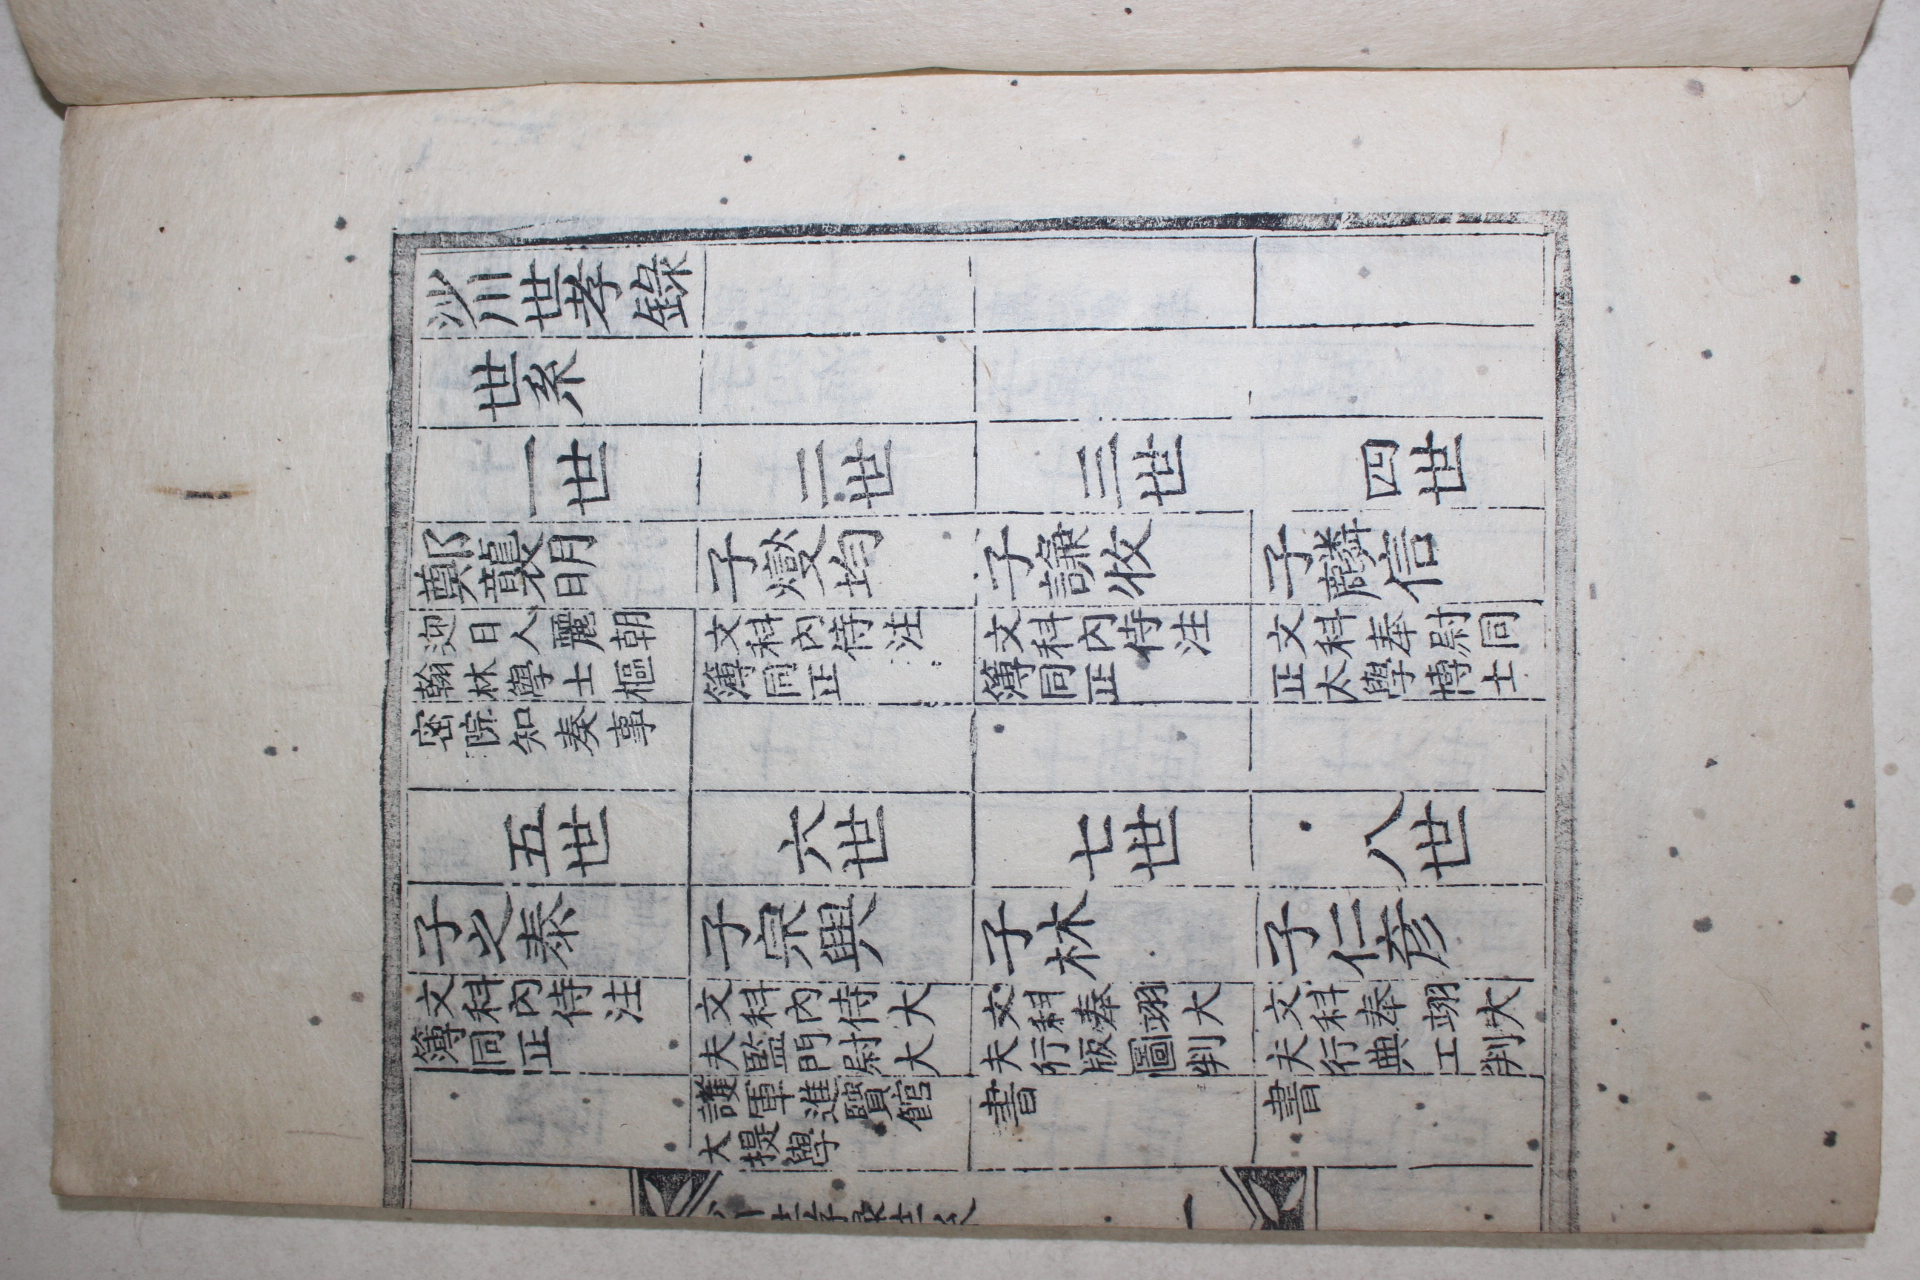 沙川世孝錄
世系
一世
二世
三世
四世
鄭襲明
迎日人麗朝
翰林學士樞
密院知奏事
子燮均
文科內侍注
簿同正
子謙牧
文科內侍注
簿同正
子麟信
文科奉尉同
正太學博士
五世
六世
七世
八世
子之泰
文科內侍注
簿同正
子宗興
文科內侍大
夫監門尉大
護軍進賢館
大提學
子林
文科奉翊大
夫行版圖判
書
子仁彦
文科奉翊大
夫行典工判
書
一